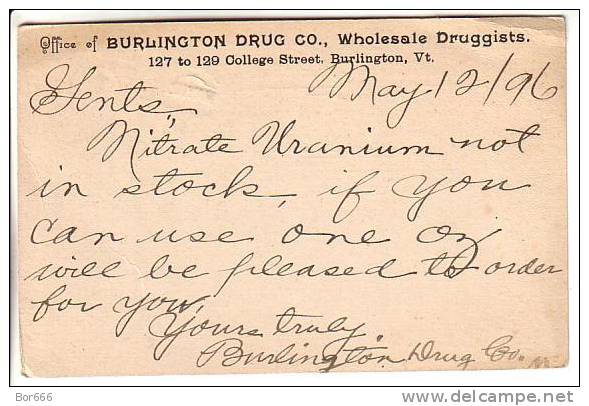 Office of BURLINGTON DRUG CO., Wholesale Druggists.
127 to 129 College Street, Burlington, Vt.
May 12/96
Gents,
Nitrate Uranium not
in stock, if you
can use one oz
will be pleased to order
for you,
Yours truly.
Burlington Drug Co.
Bor666
delcampe.net